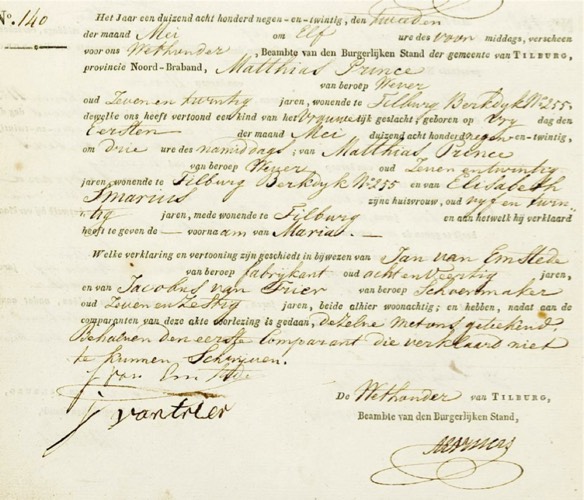 No. 140
Het Jaar een duizend acht honderd negen-en-twintig, den tweeden
der maand Mei om Elf ure des voor middags, verscheen
voor ons Wethouder, Beambte van den Burgerlijken Stand der gemeente van TILBURG,
provincie Noord-Braband, Matthias Prince
van beroep Wever
oud Zeven en twintig jaren, wonende te Tilburg Berkdyk No 255.
dewelke ons heeft vertoond een kind van het Vrouwelijk geslacht, geboren op Vry dag den
Eersten der maand Mei duizend acht honderd negen-en-twintig,
om drie ure des namiddags; van Matthias Prince
van beroep Wever oud Zeven en twintig
jaren, wonende te Tilburg Berkdyk No 255 en van Elisabeth
Smarius zijne huisvrouw, oud vyf en twin-
tig jaren, mede wonende te Tilburg en aan hetwelk hij verklaard
heeft te geven de voornaam van Maria. —
Welke verklaring en vertooning zijn geschiedt in bijwezen van Jan van Emstede
van beroep fabrikant oud acht en Veertig jaren,
en van Jacobus van Trier van beroep Schoenmaker
oud Zeven en Zestig jaren, beide alhier woonachtig; en hebben, nadat aan de
comparanten van deze akte voorlezing is gedaan, dezelve met ons geteekend
Behalven den eerste Comparant die verklaard niet
te kunnen Schryven.
J van Emstede
J van trier
De Wethouder van TILBURG,
Beambte van den Burgerlijken Stand,